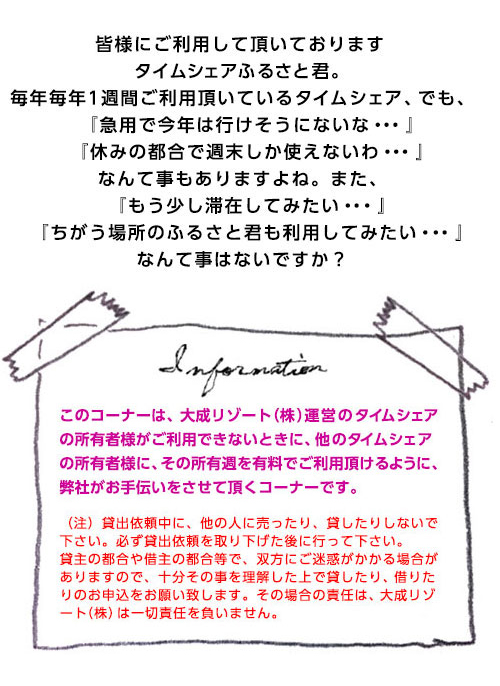 皆様にご利用して頂いております
タイムシェアふるさと君。
毎年毎年1週間ご利用頂いているタイムシェア、でも、
『急用で今年は行けそうにないな・・・』
『休みの都合で週末しか使えないわ・・・』
なんて事もありますよね。また、
『もう少し滞在してみたい・・・』
『ちがう場所のふるさと君も利用してみたい・・・』
なんて事はないですか？
Information
このコーナーは、大成リゾート（株）運営のタイムシェア
の所有者様がご利用できないときに、他のタイムシェア
の所有者様に、その所有週を有料でご利用頂けるように、
弊社がお手伝いをさせて頂くコーナーです。
（注）貸出依頼中に、他の人に売ったり、貸したりしないで
下さい。必ず貸出依頼を取り下げた後に行って下さい。
貸主の都合や借主の都合等で、双方にご迷惑がかかる場合が
ありますので、十分その事を理解した上で貸したり、借りた
りのお申込をお願い致します。その場合の責任は、大成リゾ
ート（株）は一切責任を負いません。